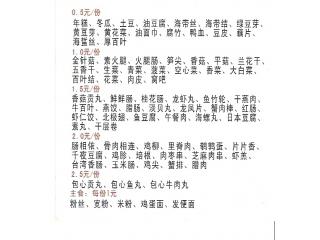 0.5元/份
年糕、冬瓜、土豆、油豆腐、海带丝、海带结、绿豆芽、
黄豆芽、黄花菜、油面巾、腐竹、鸭血、豆皮、藕片、
海蜇丝、厚百叶
1.0元/份
金针菇、素火腿、火腿肠、笋尖、香菇、平菇、兰花干、
五香干、生菜、青菜、菠菜、空心菜、香菜、大白菜、
百叶结、花菜、肉皮、窝吧
1.5元/份
香菇贡丸、鲜鲜肠、桂花肠、龙虾丸、鱼竹轮、干燕肉、
牛百叶、燕饺、腊肠、贡丸、龙凤片、蟹肉棒、红肠、
虾仁饺、北极翅、鱼豆腐、午餐肉、海螺丸、日本豆腐、
素丸、千层卷
2.0元/份
肠相依、骨肉相连、鸡柳、里脊肉、鹌鹑蛋、片片香、
千夜豆腐、鸡胗、培根、肉枣串、芝麻肉串、虾羔、
台湾香肠、玉米肠、鸡尖、蟹排、腊肉
2.5元/份
包心贡丸、包心鱼丸、包心牛肉丸
主食：每份1元
粉丝、宽粉、米粉、鸡蛋面、发便面